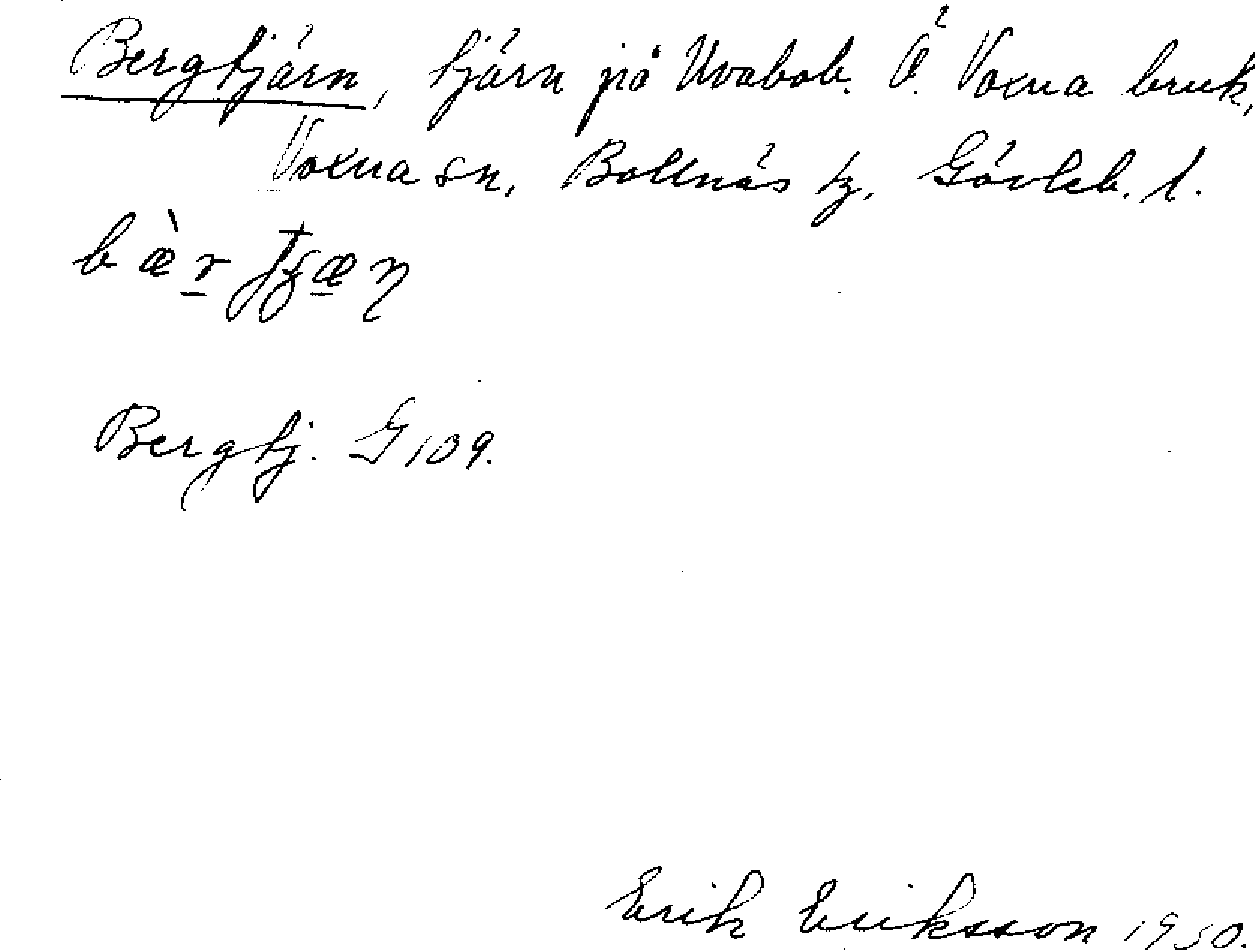 Bergtjärn, tjärn på Uvabob. Ö. Voxna bruk,
Voxna sn, Bollnäs tg, Gävleb. l.
Bergtj. G 109.
Erik Eriksson 1930